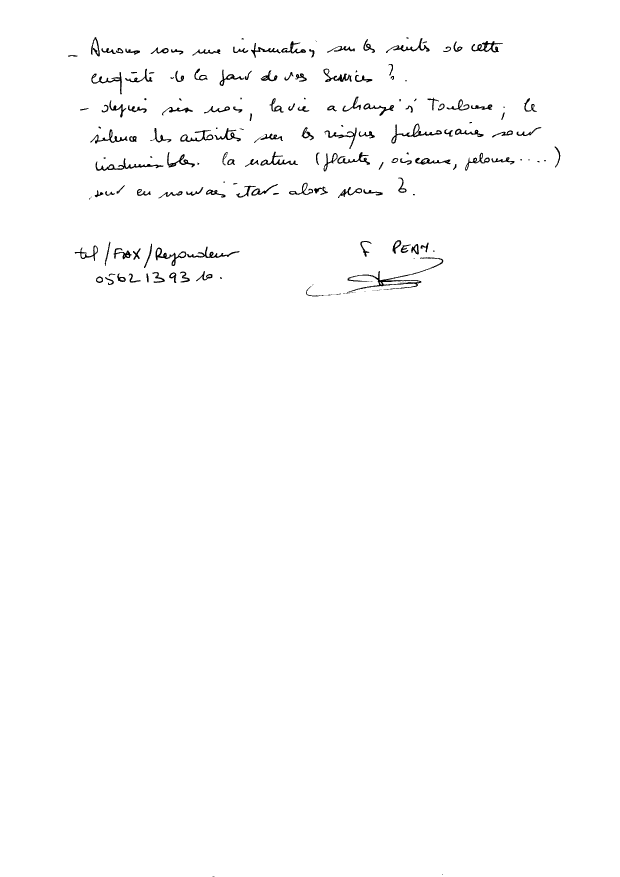 - Aurons nous une information sur les suites de cette
enquête de la part de vos Services ?.
- depuis six mois, la vie a changé à Toulouse ; le
silence des autorités sur les risques pulmonaires sont
inadmissibles. la nature (plantes, oiseaux, pelouses....)
sont en mauvais état - alors nous ?.
tel/FAX/Repondeur
F PEAN.
05621393 10.